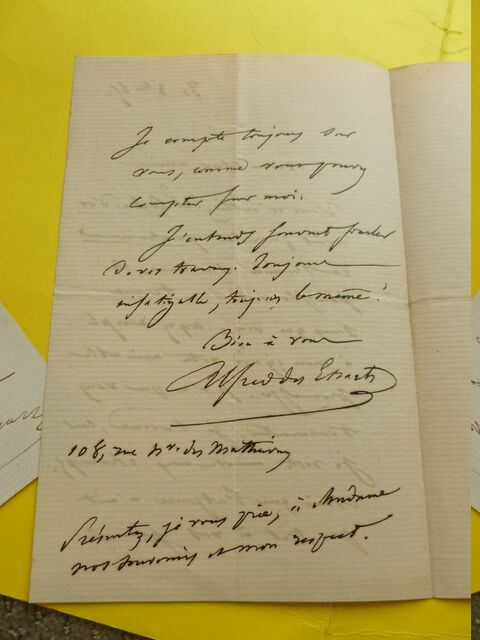 Je compte toujours sur
vous, comme vous pouvez
compter sur moi.
J'entends souvent parler
de vos travaux. Toujours
infatigable, toujours le même!
Bien à vous
Alfred des Essarts
108, rue Nve. des Mathurins
Présentez, je vous prie, à Madame
nos souvenirs et mon respect.